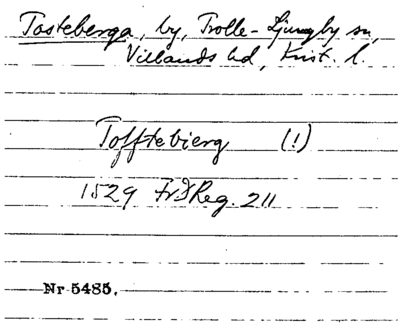 Tosteberga, by, Trolle-Ljungby sn,
Villands hd, Krist. l.
Tofftebierg (!)
1529 FrIReg. 211
Nr 5485.